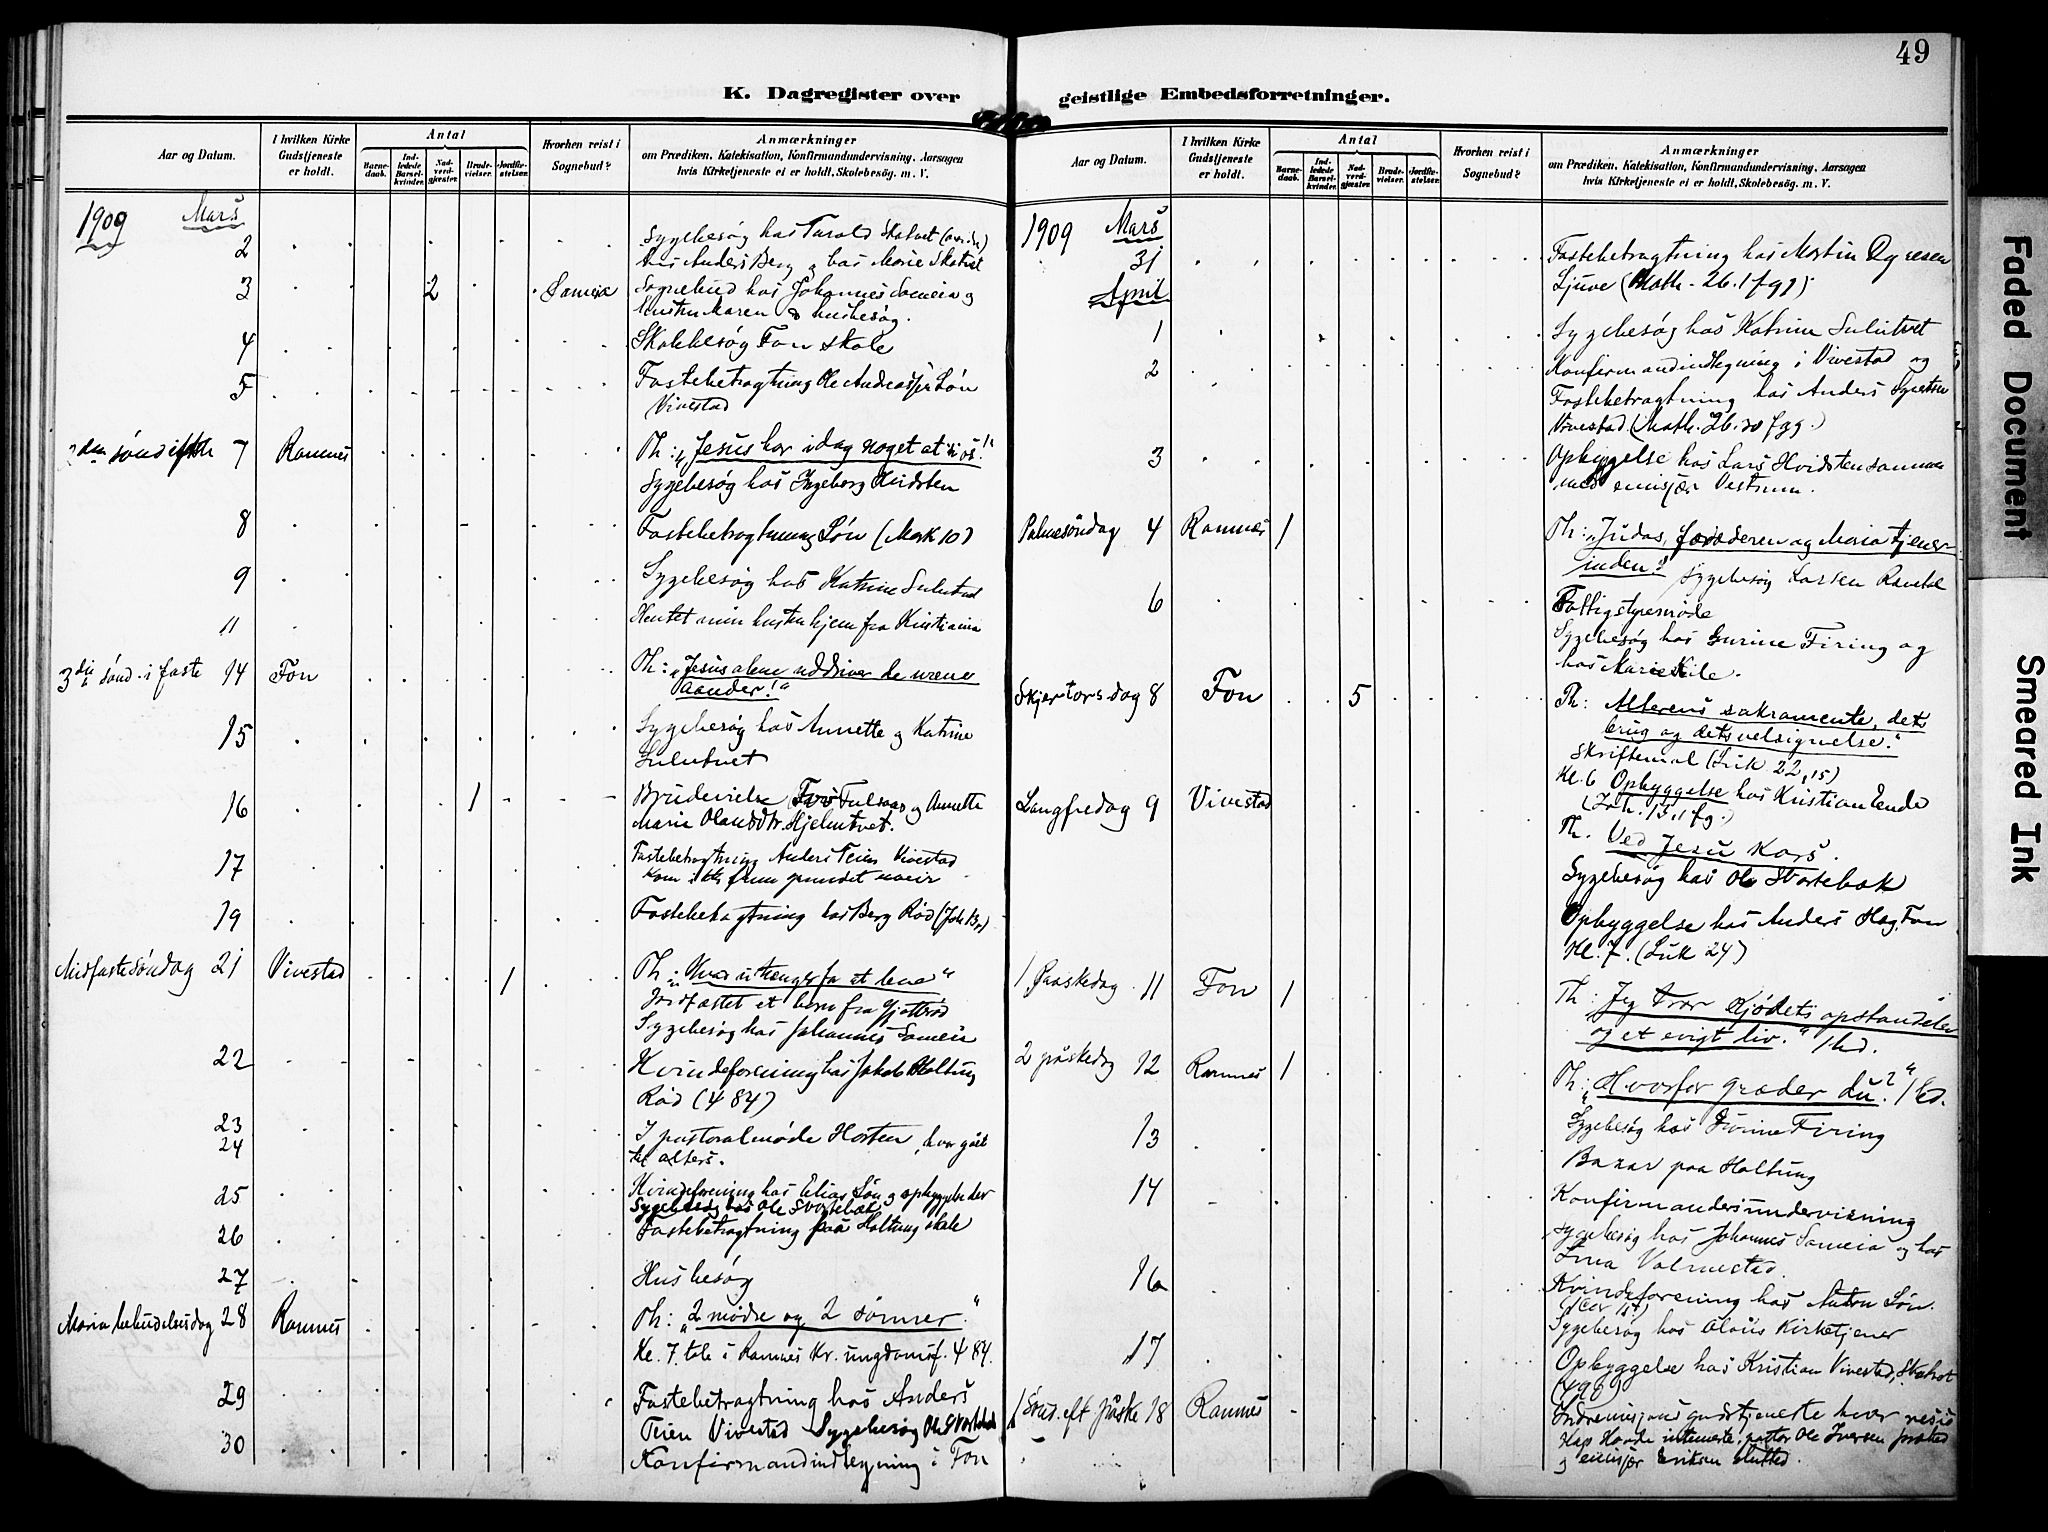 49
K. Dagregister over geistlige Embedsforretninger.
Aar og Datum.
I hvilken Kirke Gudstjeneste er holdt.
Antal
Barnedaab.
Indledede Barselkvinder.
Nadverdgjester.
Brudevielser.
Jordfæstelser.
Hvorhen reist i Sognebud?
Anmærkninger
om Prædiken, Katekisation, Konfirmandundervisning, Aarsagen
hvis Kirketjeneste ei er holdt, Skolebesøg. m. V.
1909 Mars
2 Sygebesøg hos
Anders Berg og hos Marie
3 2 Sameia Sognebud hos Johannes Sameia og
hustru Maren & husbesøg.
4 Skolebesøg Fon skole
5 Fastebetragtning Ole
Vivestad
7 Ramnes Th: "Jesus har idag noget at si os!"
Sygebesøg hos Ingeborg
8 Fastebetragtning Løn (Mark 10)
9 Sygebesøg hos Katrine
11 Hentet min hustru hjem fra Kristiania
3die sønd. i faste 14 Fon Th: "Jesus alene uddriver de urene
aander!"
15 Sygebesøg hos Annette og Katrine
16 1 Brudevielse og Annette
Marie
17 Fastebetragtning Anders Teien Vivestad
Kom ikke frem grundet
19 Fastebetragtning hos Berg Rød
Midfastesøndag 21 Vivestad 1 Th:
Jordfæstet et barn fra
Sygebesøg hos Johannes Sameia
22 Kvindeforening hos Jakob Holtung
Rød (484)
23
24 I pastoralmøde Horten, hvor gået
til alters.
25 Kvindeforening hos Elias Løn og opbyggelse der
Sygebesøg hos Ole Svartebæk
26 Fastebetragtning paa Holtung skole
27 Husbesøg
Maria bebudelsesdag 28 Ramnes Th: "2 mødre og 2 sønner."
Kl. 7 tale i Ramnes Kr. ungdomsf. 484.
29 Fastebetragtning hos Anders
Teien Vivestad Sygebesøg Ole Svartebæk
30 Konfirmandindtegning i Fon
Aar og Datum.
I hvilken Kirke Gudstjeneste er holdt.
Antal
Barnedaab.
Indledede Barselkvinder.
Nadverdgjester.
Brudevielser.
Jordfæstelser.
Hvorhen reist i Sognebud?
Anmærkninger
om Prædiken, Katekisation, Konfirmandundervisning, Aarsagen
hvis Kirketjeneste ei er holdt, Skolebesøg. m. V.
1909 Mars
31 Fastebetragtning hos Martin
(Math. 26.1 fgg)
April
1 Sygebesøg hos Katrine
2 Konfirmandindtegning i Vivestad og
Fastebetragtning hos Anders
Vivestad (Math. 26.30 fgg.)
3 Opbyggelse hos Lars Hvidsten sammen
med emisjær Vestrum.
Palmesøndag 4 Ramnes 1 Th: "Judas, forræderen og Maria tjener-
inden" Sygebesøg Larsen
6 Fattigstyremøde
Sygebesøg hos Gurine Firing og
hos Marie
Skjertorsdag 8 Fon 5 Th: Alterens sakramente, dets
brug og dets velsignelse."
Skriftemal (Luk 22,15)
Kl. 6 Opbyggelse hos Kristian Lende
(Joh. 13,1 fg.)
Langfredag 9 Vivestad Th. Ved Jesu Kors.
Sygebesøg hos Ole Svartebæk
Opbyggelse hos Anders Hag, Fon
Kl. 7. (Luk 24)
1 Paaskedag 11 Fon 1 Th: Jeg tror Kjødets opstandelse
og et evigt liv."
2 påskedag 12 Ramnes 1 Th: "Hvorfor græder du?"
13 Sygebesøg hos Firing
Bazar paa Holtung
14 Konfirmandersundervisning
Sygebesøg hos Johannes Sameia og hos
16 Kvindeforening hos Anton Løn.
Sygebesøg hos Olaus Kirketjener
17 Opbyggelse hos Kristian Vivestad,
1 Sønd. eft påske 18 Ramnes Indremisjonsgudstjeneste hvor
Kap Hovde pastor Ole Iversen
og emisjær Eriksen
Faded Document
Smeared Ink